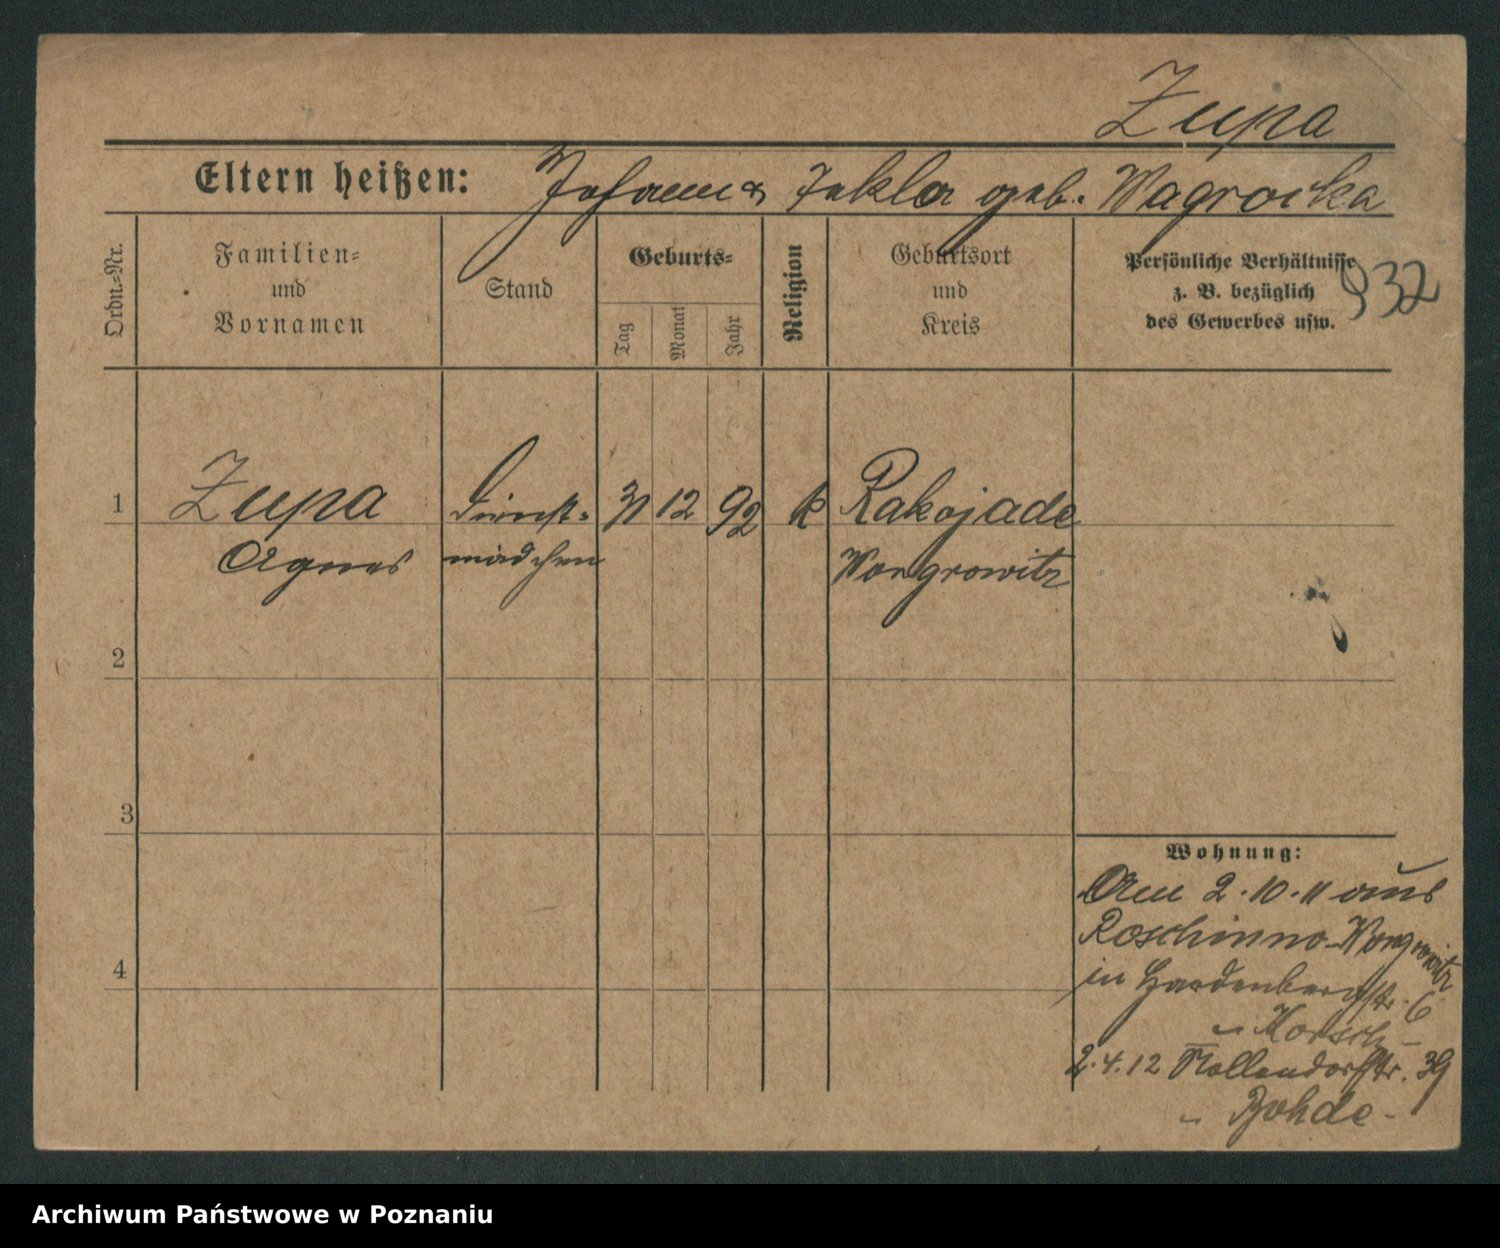 Zupa
Eltern heißen: Johann & Tekla geb. Wagrocka
Ordn.-Nr.
Familien-
und
Vornamen
Stand
Geburts-
Tag
Monat
Jahr
Religion
Geburtsort
und
Kreis
Persönliche Verhältnisse
z. B. bezüglich
des Gewerbes usw.
932
1 Zupa Dienst- 31 12 92 k Rakojade
Agnes mädchen Wongrowitz
2
3
4
Wohnung:
Am 2.10.11 aus
Roschinno-Wongrowitz
in Hardenbergstr. 6
- Korsch -
2.4.12 Nollendorfstr. 39
- Bohde -